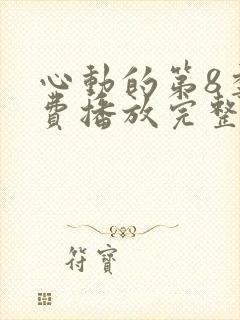 心動的第8季
費播放完整
符寶